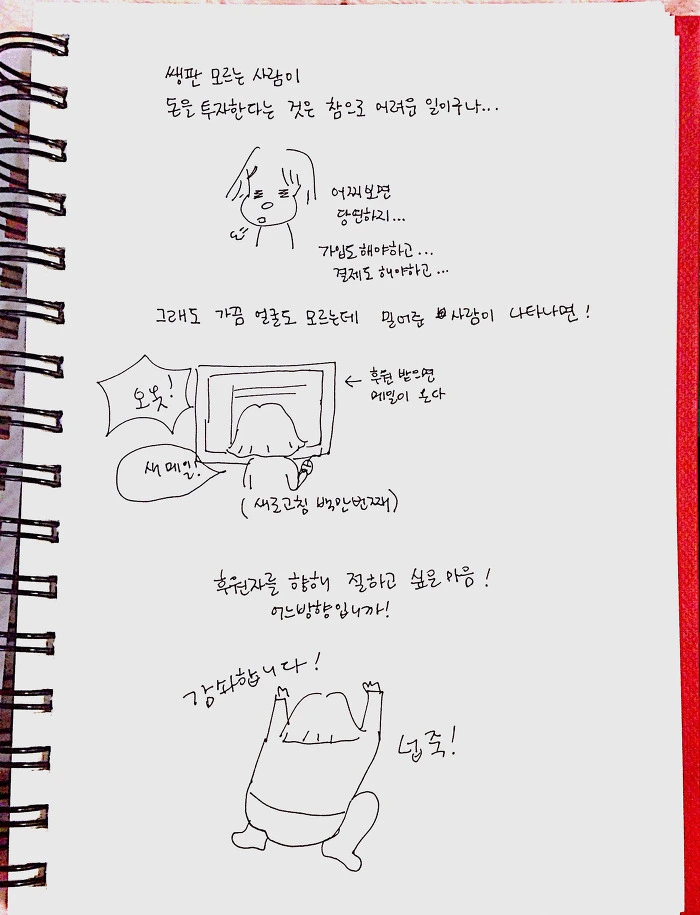 쌩판 모르는 사람이
돈을 투자한다는 것은 참으로 어려운 일이구나...
어찌보면
당연하지...
가입도해야하고...
결제도 해야하고...
그래도 가끔 얼굴도 모르는데 밀어준 사람이 나타나면!
오옷!
← 후원 받으면
메일이 온다
새 메일!
(새로고침 백만번째)
후원자를 향해 절하고 싶은 마음!
어느방향입니까!
감솨합니다!
넙죽!